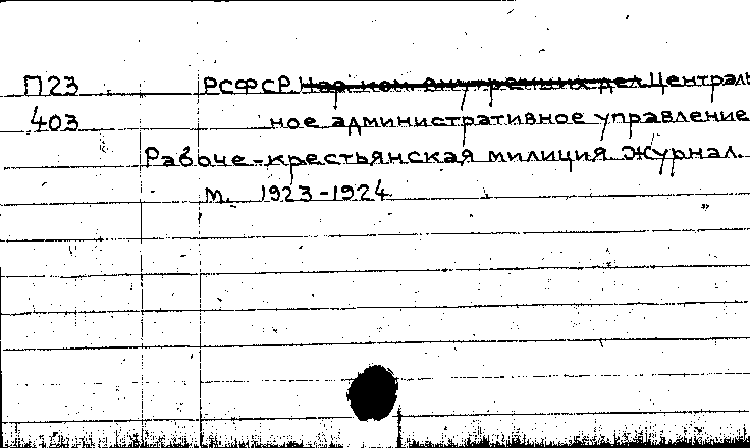 П23 РСФСР Нар. ком. внутренних дел Централь
403 ное административное управление
Рабоче-крестьянская милиция. Журнал.
М. 1923-1924